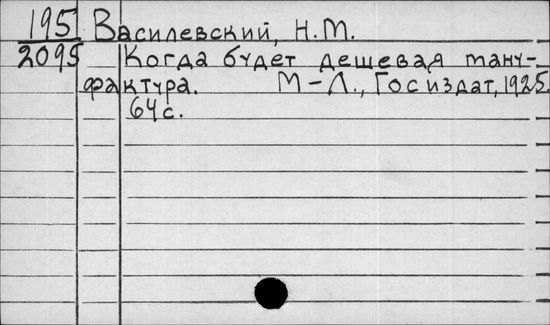 195 Василевский, Н.М.
2095 Когда будет дешевая ману-
фактура. М-Л., Госиздат, 1925.
64 с.